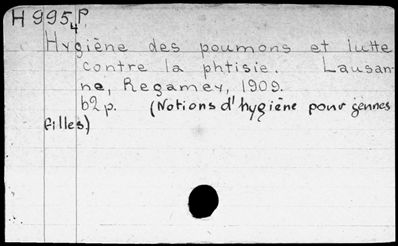 H 995 P.
4
Hygiène des poumons et lutte
contre la phtisie. Lausan-
ne, Regamey, 1909.
62 p. (Notions d'hygiène pour jennes
filles)